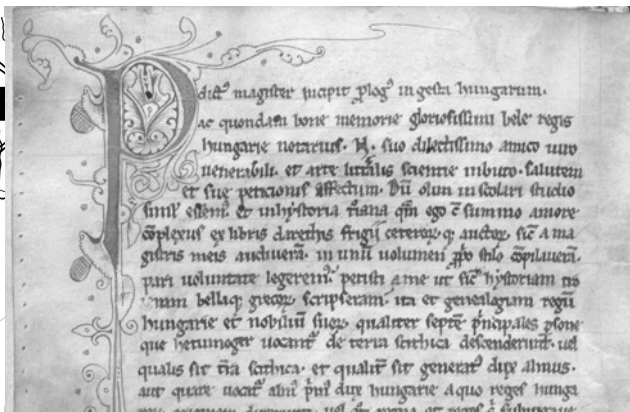 P dictꝰ magister incipit ꝓlogꝰ in gesta hungarum.
ac quondam bone memorie gloriosissimi bele regis
hungarie notarius. N. suo dilectissimo amico uiro
uenerabili. et arte litt̃alis scientie inbuto. salutem
et sue peticionis effectum. Dũ olim in scolari studio
simul essemꝰ. et in hystoria t̃iana q̃m ego c̃ summo amore
cõplexus ex libris darethis frigii ceteroꝝ q; auctoꝝ. sic̃ a ma
gistris meis audiuerã. in unũ uolumen ꝓprio stilo cõpilauerã.
pari uoluntate legeremꝰ. petisti a me ut sic̃ hystoriam tro
ianam bellaq; grecoꝝ scripseram. ita et genealogiam regũ
hungarie et nobiliũ suoꝝ. qualiter septẽ p̃ncipales ꝑsone
que hetumoger uocant̃ de terra scithica descenderũt. uel
qualis sit t̃ra scithica. et qualit̃ sit generatꝰ dux almus.
aut quare uocat̃ almꝰ p̃mꝰ dux hungarie a quo reges hunga